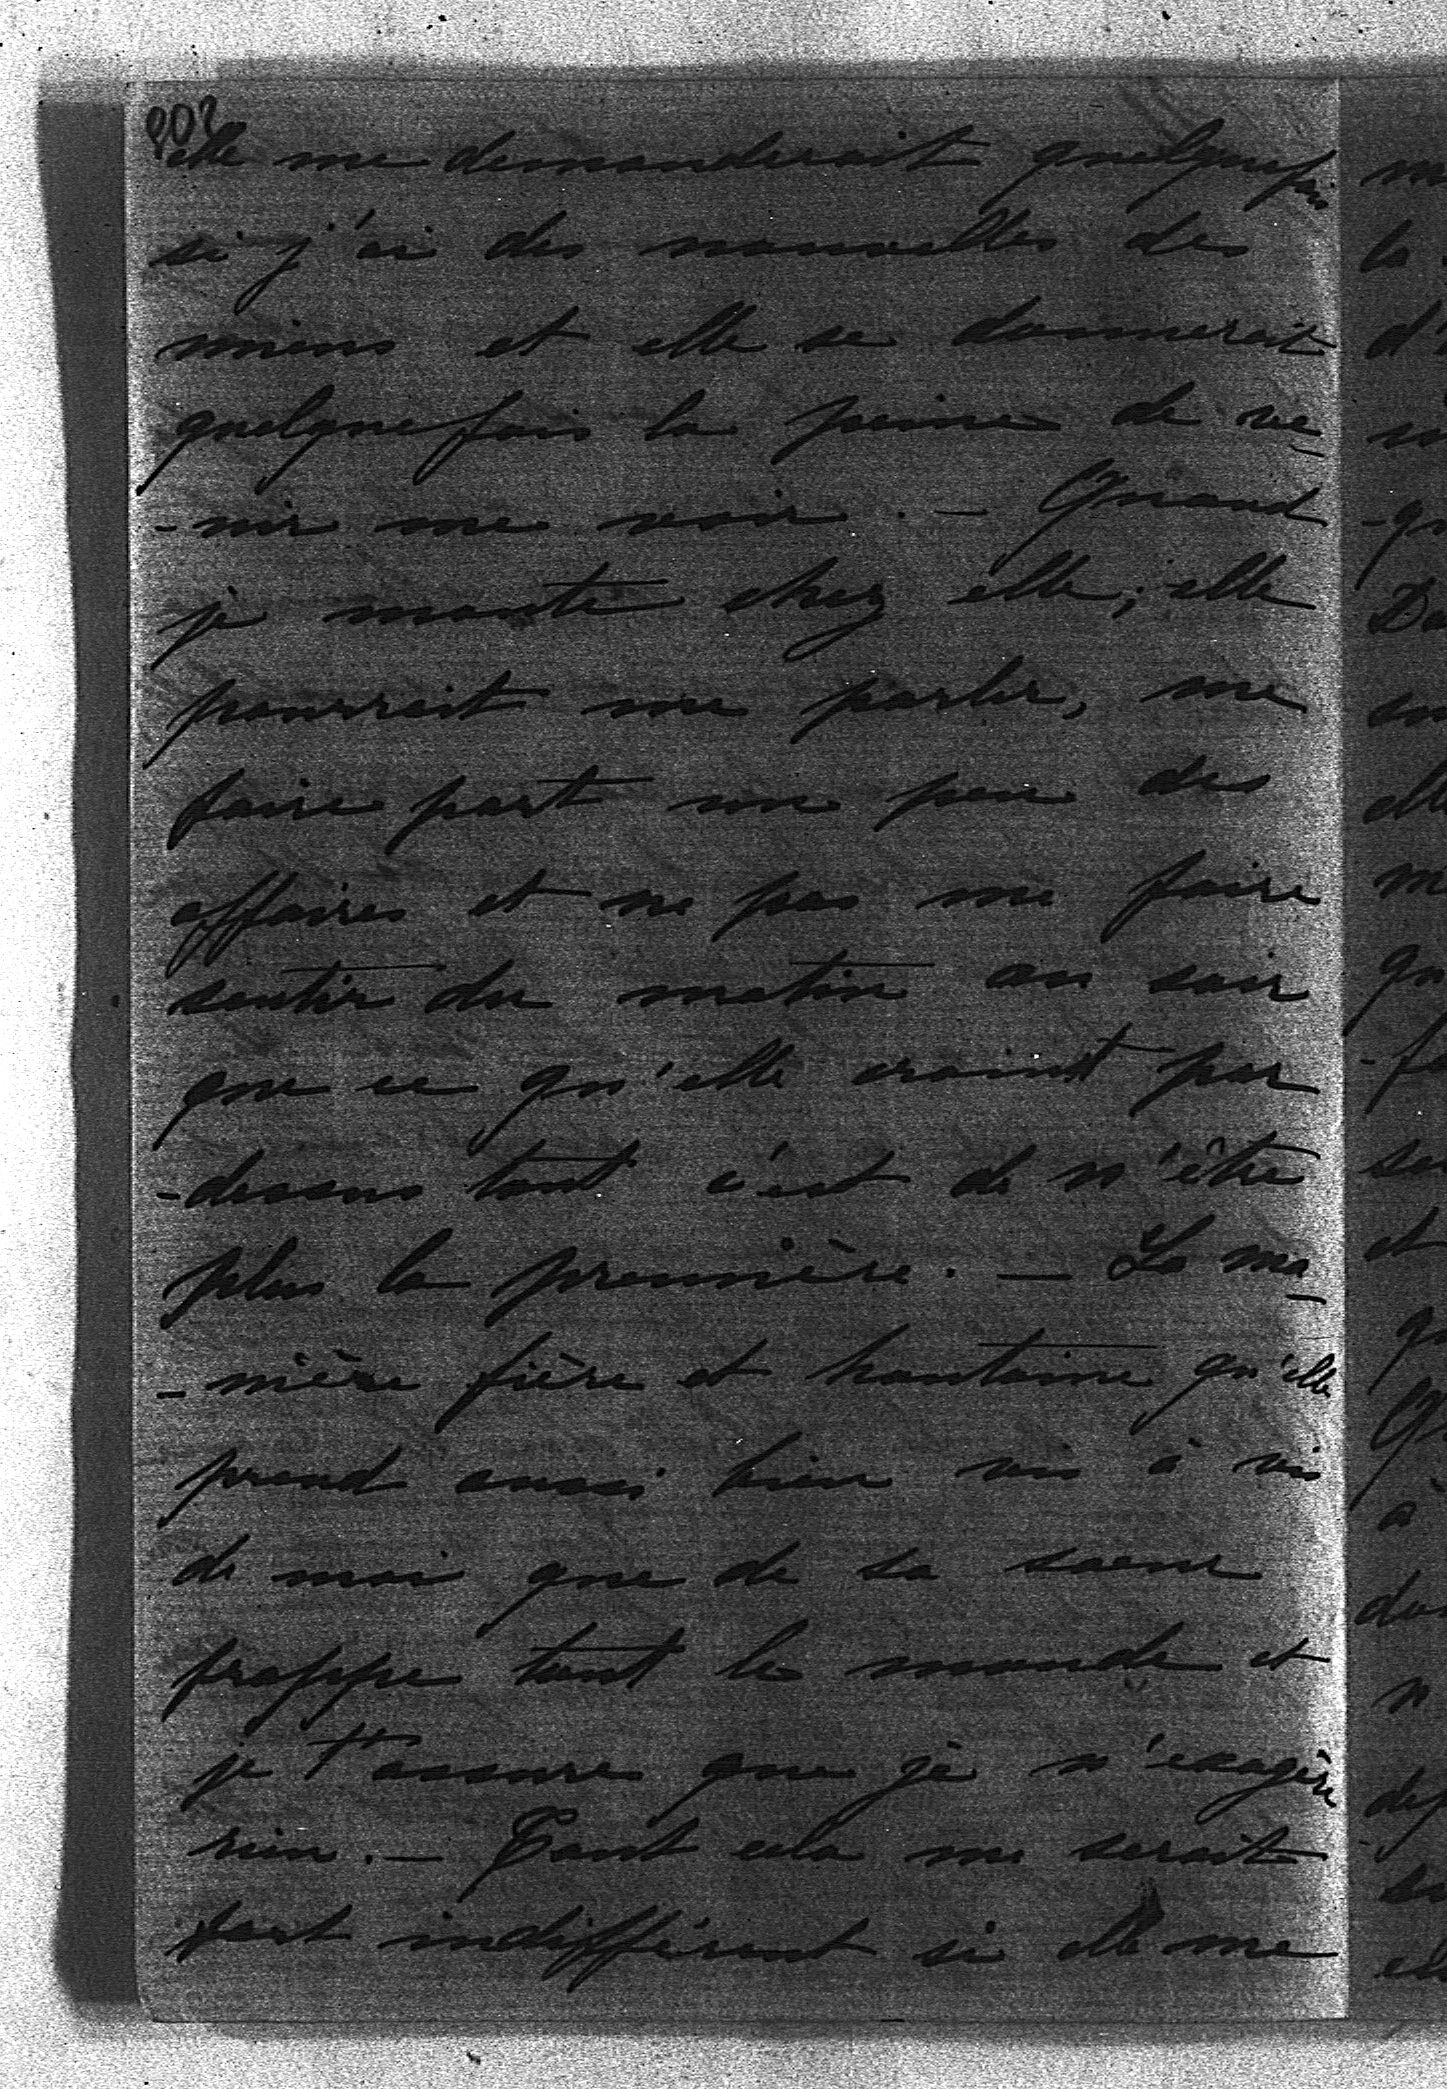 elle me demanderait quelquefois
si j'ai des nouvelles des
miens et elle se donnerait
quelquefois la peine de ve
-nir me voir. — Quand
je monte chez elle, elle
pourrait me parler, me
faire part un peu des
affaires et ne pas me faire
sentir du matin au soir
que ce qu'elle craint par
-dessus tout c'est de n'être
plus la première. — La ma
-nière fière et hautaine qu'elle
prend aussi bien vis à vis
de moi que de sa soeur
frappe tout le monde et
je t'assure que je n'exagère
rien. — Tout cela me serait
fort indifférent si elle me